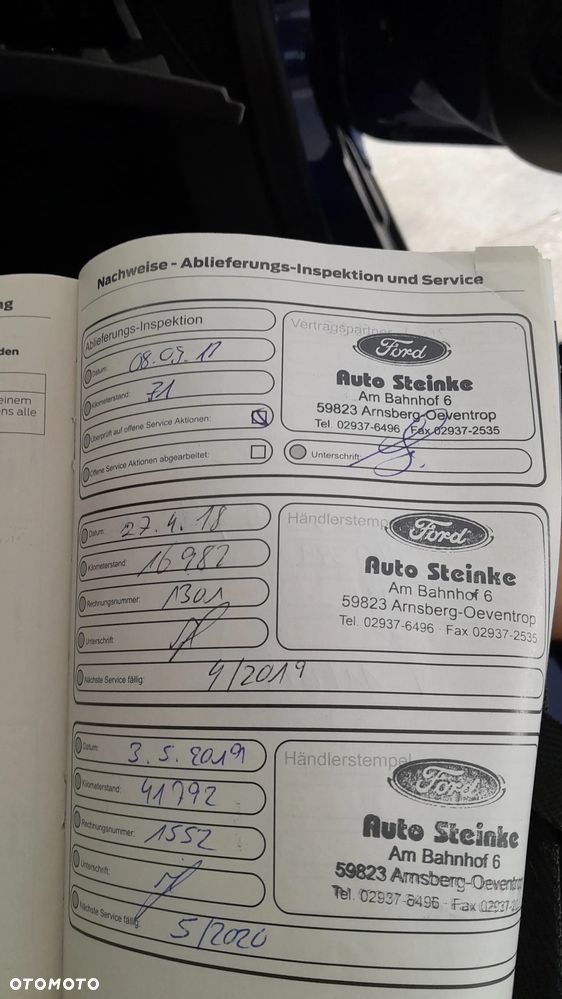 ng
den
einem
ns alle
Nachweise - Ablieferungs-Inspektion und Service
Ablieferungs-Inspektion
Datum: 08.05.17
Kilometerstand: 71
Überprüft auf offene Service Aktionen:
Offene Service Aktionen abgearbeitet:
Vertragspartner
Ford
Auto Steinke
Am Bahnhof 6
59823 Arnsberg-Oeventrop
Tel. 02937-6496 Fax 02937-2535
Unterschrift:
Datum: 27.4.18
Kilometerstand: 16982
Rechnungsnummer: 1301
Unterschrift:
Nächste Service fällig: 4/2019
Händlerstempel
Ford
Auto Steinke
Am Bahnhof 6
59823 Arnsberg-Oeventrop
Tel. 02937-6496 · Fax 02937-2535
Datum: 3.5.2019
Kilometerstand: 41792
Rechnungsnummer: 1552
Unterschrift:
Nächste Service fällig: 5/2020
Händlerstempel
Ford
Auto Steinke
Am Bahnhof 6
59823 Arnsberg-Oeventrop
Tel. 02937-6496 · Fax 02937-2
OTOMOTO